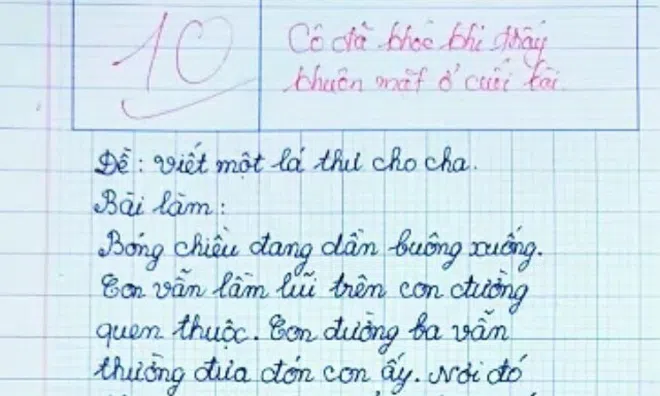 10
Cô đã khóc khi thấy
khuôn mặt ở cuối bài.
Đề: Viết một lá thư cho cha.
Bài làm:
Bóng chiều đang dần buông xuống.
Con vẫn lầm lũi trên con đường
quen thuộc. Con đường ba vẫn
thường đưa đón con ấy. Nơi đó